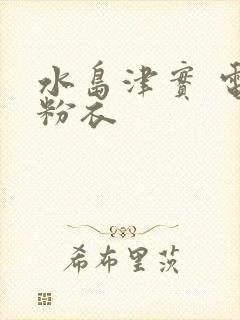 水島津實
粉衣
希布里茨